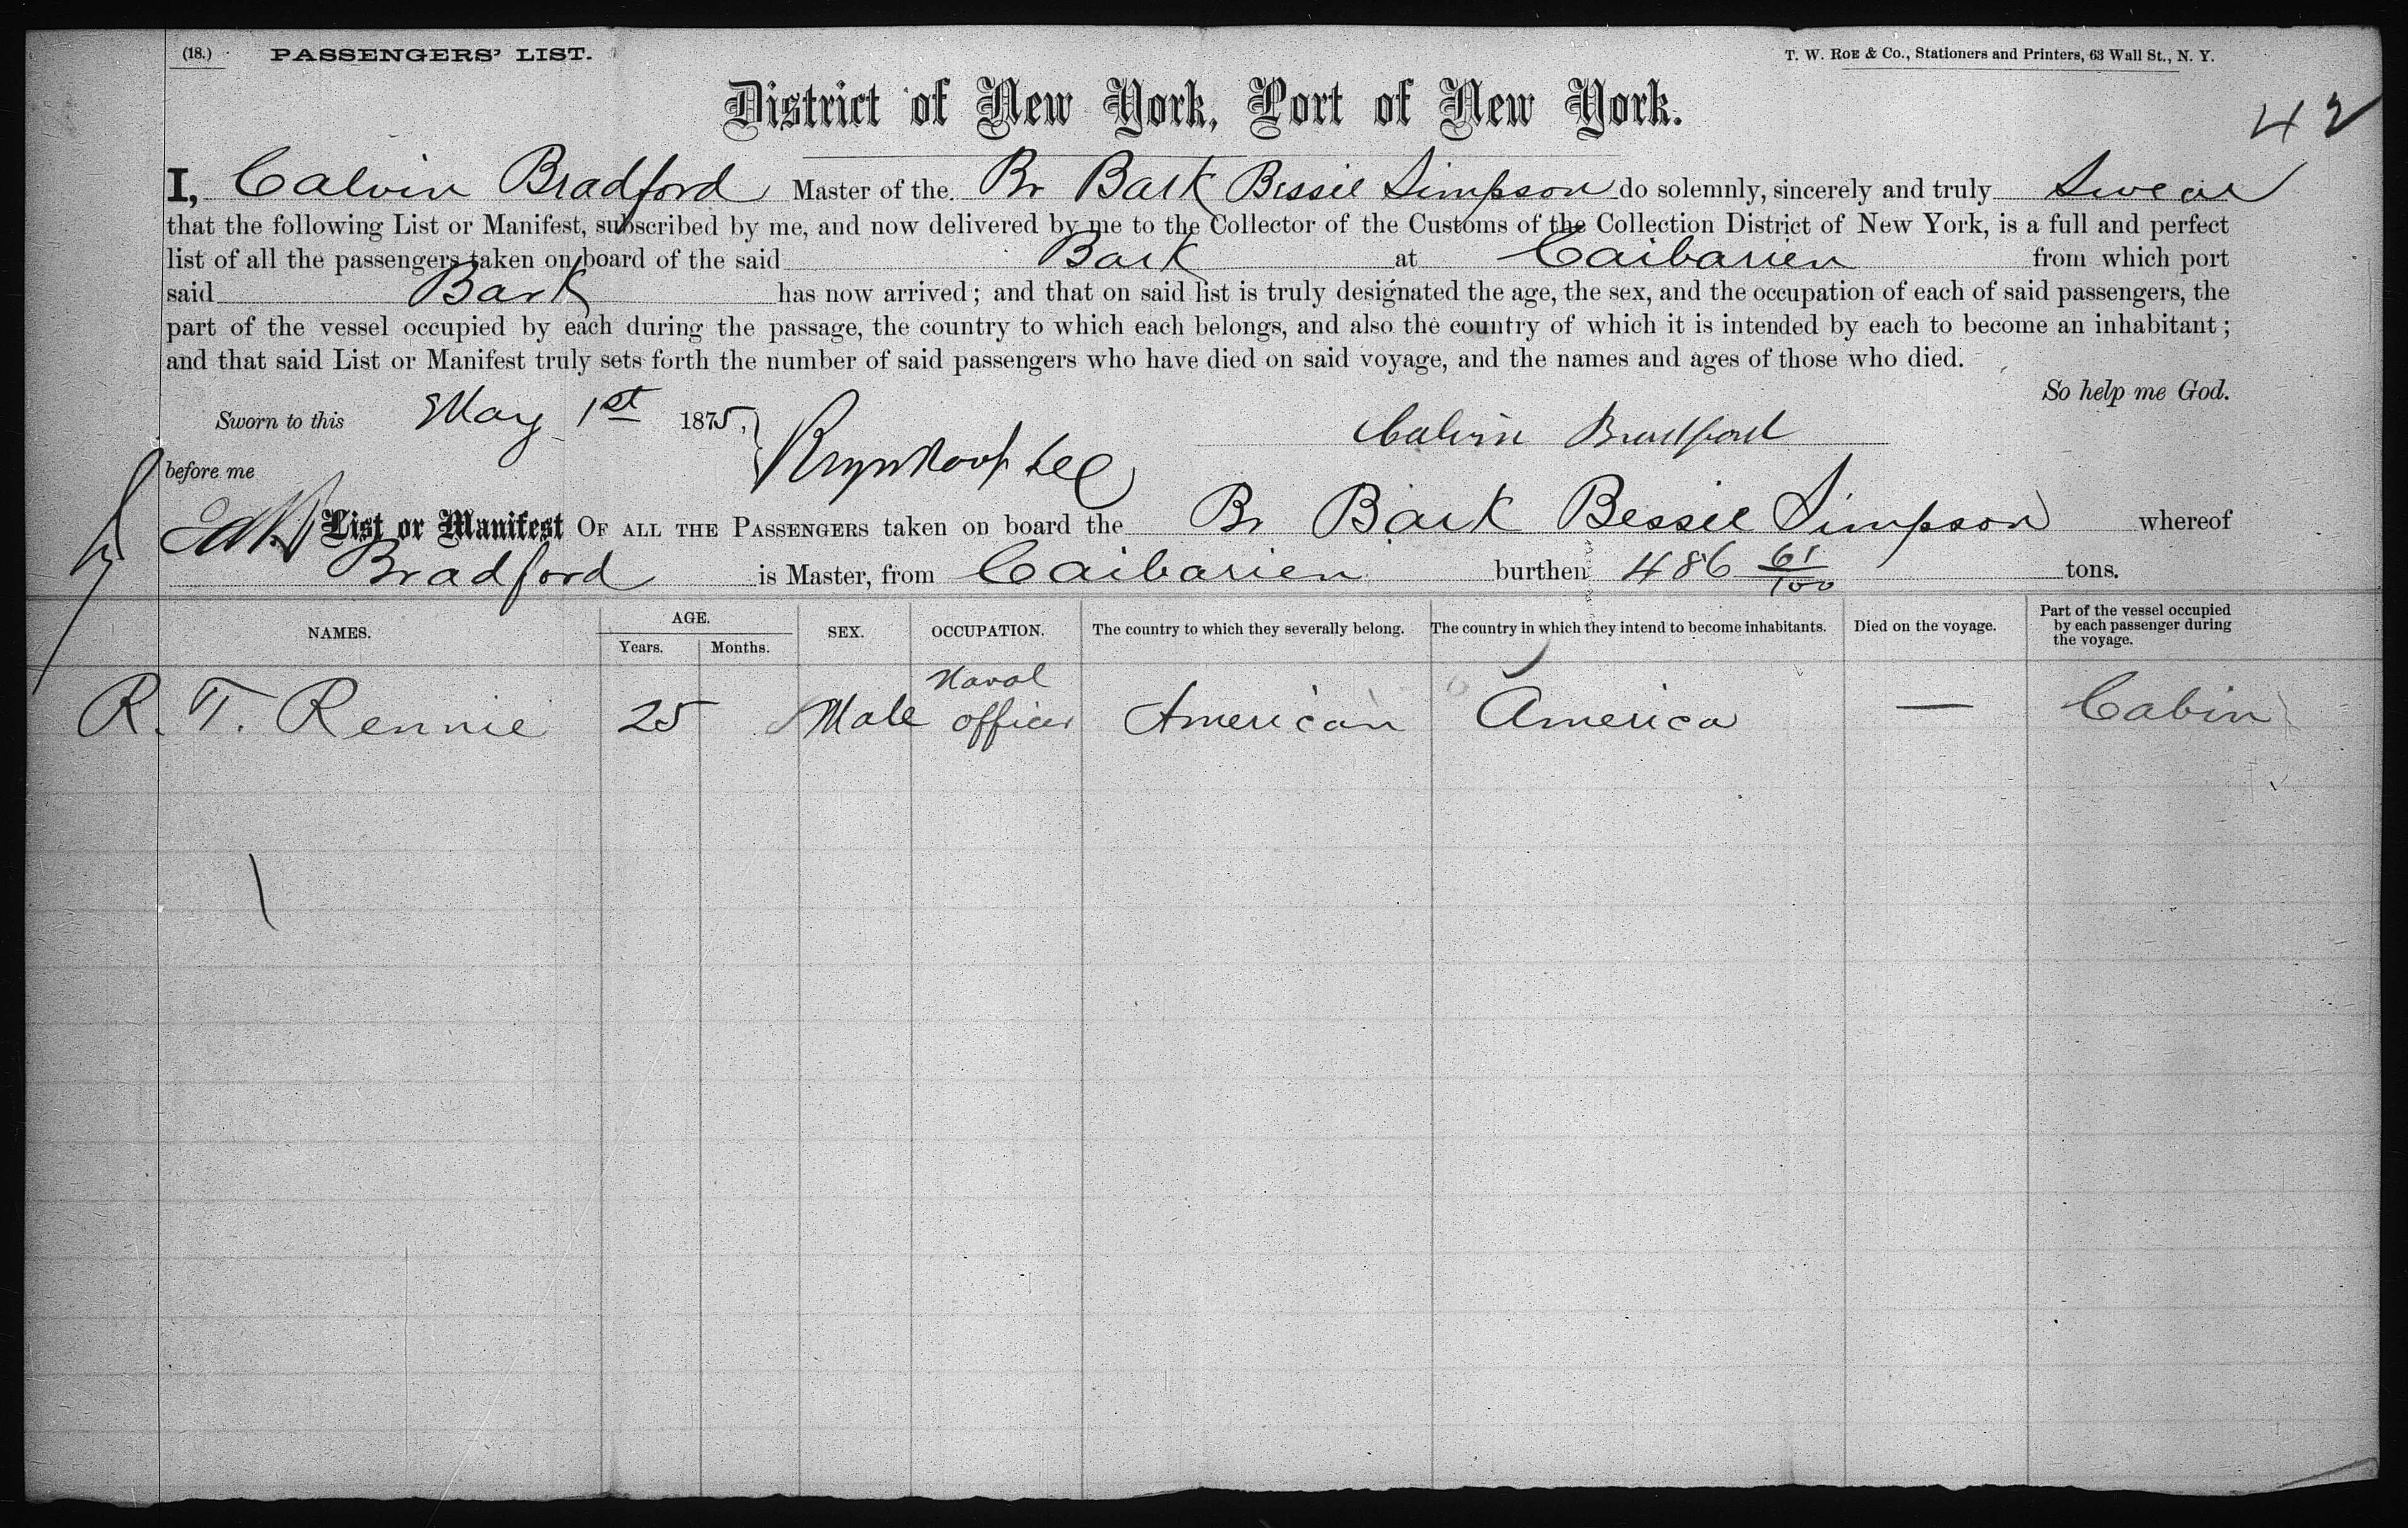 (18.) PASSENGERS' LIST.
T. W. ROE & Co., Stationers and Printers, 63 Wall St., N. Y.
District of New York, Port of New York.
42
I, Calvin Bradford Master of the Br Bark Bessie Simpson do solemnly, sincerely and truly Swear
that the following List or Manifest, subscribed by me, and now delivered by me to the Collector of the Customs of the Collection District of New York, is a full and perfect
list of all the passengers taken on board of the said Bark at Caibarien from which port
said Bark has now arrived; and that on said list is truly designated the age, the sex, and the occupation of each of said passengers, the
part of the vessel occupied by each during the passage, the country to which each belongs, and also the country of which it is intended by each to become an inhabitant;
and that said List or Manifest truly sets forth the number of said passengers who have died on said voyage, and the names and ages of those who died.
So help me God.
Sworn to this May 1st 1875,
Calvin Bradford
before me
List or Manifest OF ALL THE PASSENGERS taken on board the Br Bark Bessie Simpson whereof
Bradford is Master, from Caibarien burthen 486 61/100 tons.
NAMES.
AGE.
Years. Months.
SEX.
OCCUPATION.
The country to which they severally belong.
The country in which they intend to become inhabitants.
Died on the voyage.
Part of the vessel occupied
by each passenger during
the voyage.
R. T. Rennie 25 Male Naval officer American America — Cabin